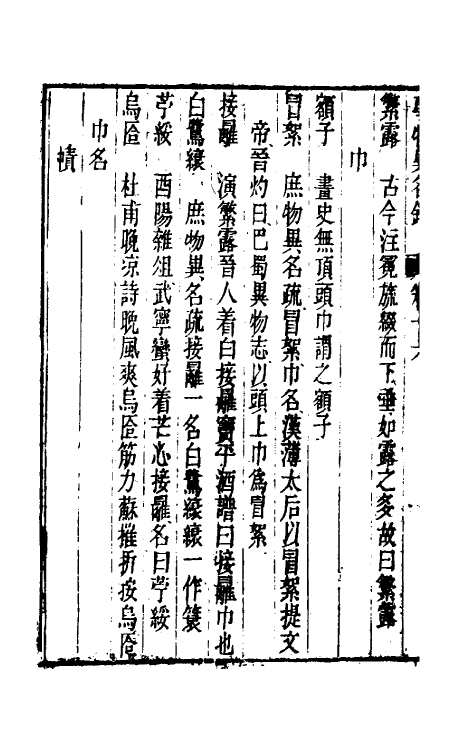 事物異名錄 卷十六
繁露　古今注冕旒綴而下垂如露之多故曰繁露
巾
額子　畫史無頂頭巾謂之額子
冒絮　庶物異名疏冒絮巾名漢薄太后以冒絮提文
帝晉灼曰巴蜀異物志以頭上巾爲冒絮
接䍦　演繁露晉人着白接䍦竇苹酒譜曰接䍦巾也
白鷺縗　庶物異名疏接䍦一名白鷺縗縗一作簑
苧綏　酉陽雜俎武寧蠻好着芒心接䍦名曰苧綏
烏匼　杜甫晚涼詩晚風爽烏匼筋力蘇摧折按烏匼
巾名
幘